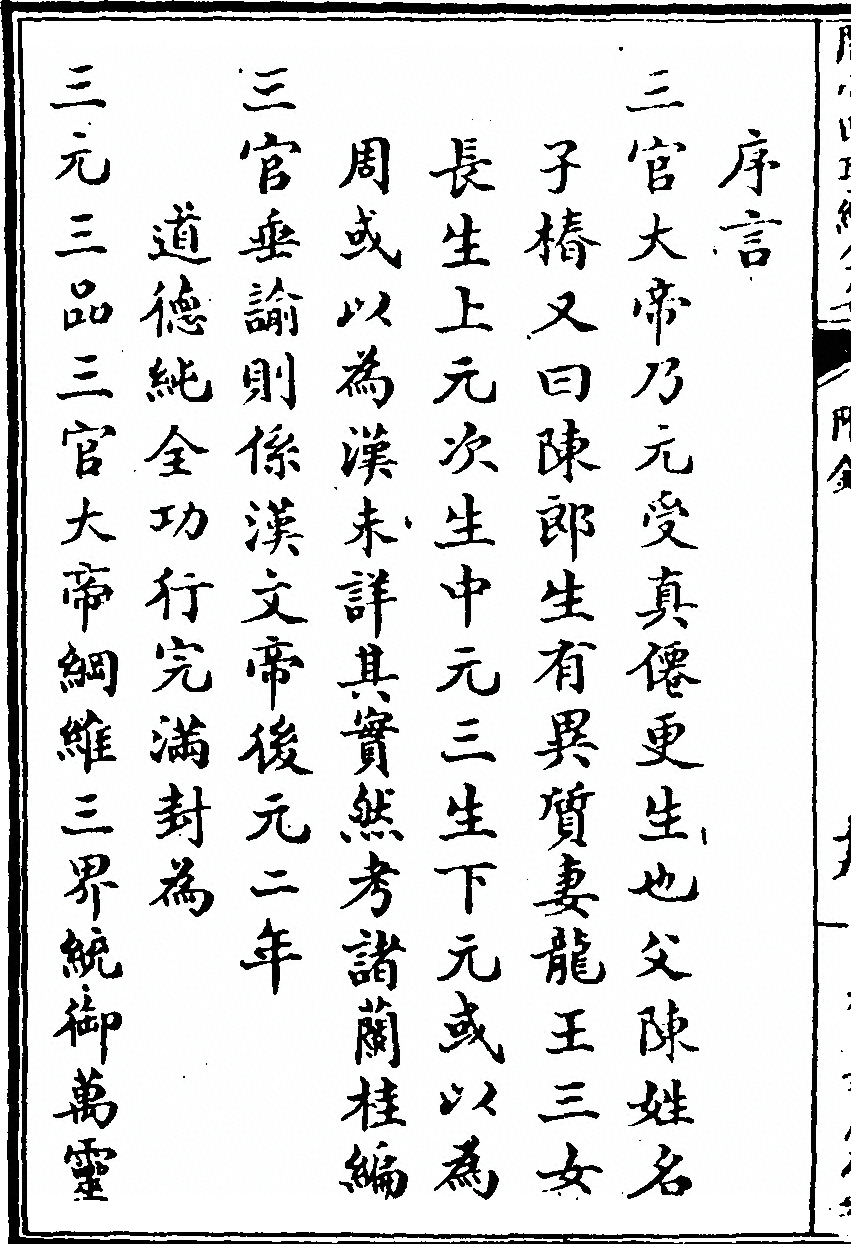 序言
三官大帝乃元受真僊更生也父陳姓名
子椿又曰陳郎生有異質妻龍王三女
長生上元次生中元三生下元或以為
周或以為漢未詳其實然考諸蘭桂編
三官垂諭則係漢文帝後元二年
道德純全功行完滿封為
三元三品三官大帝綱維三界統御萬靈